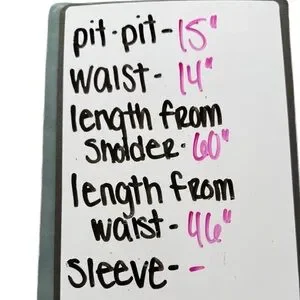 pit-pit-15"
waist-14"
length from
Sholder-60"
length from
waist-46"
Sleeve--